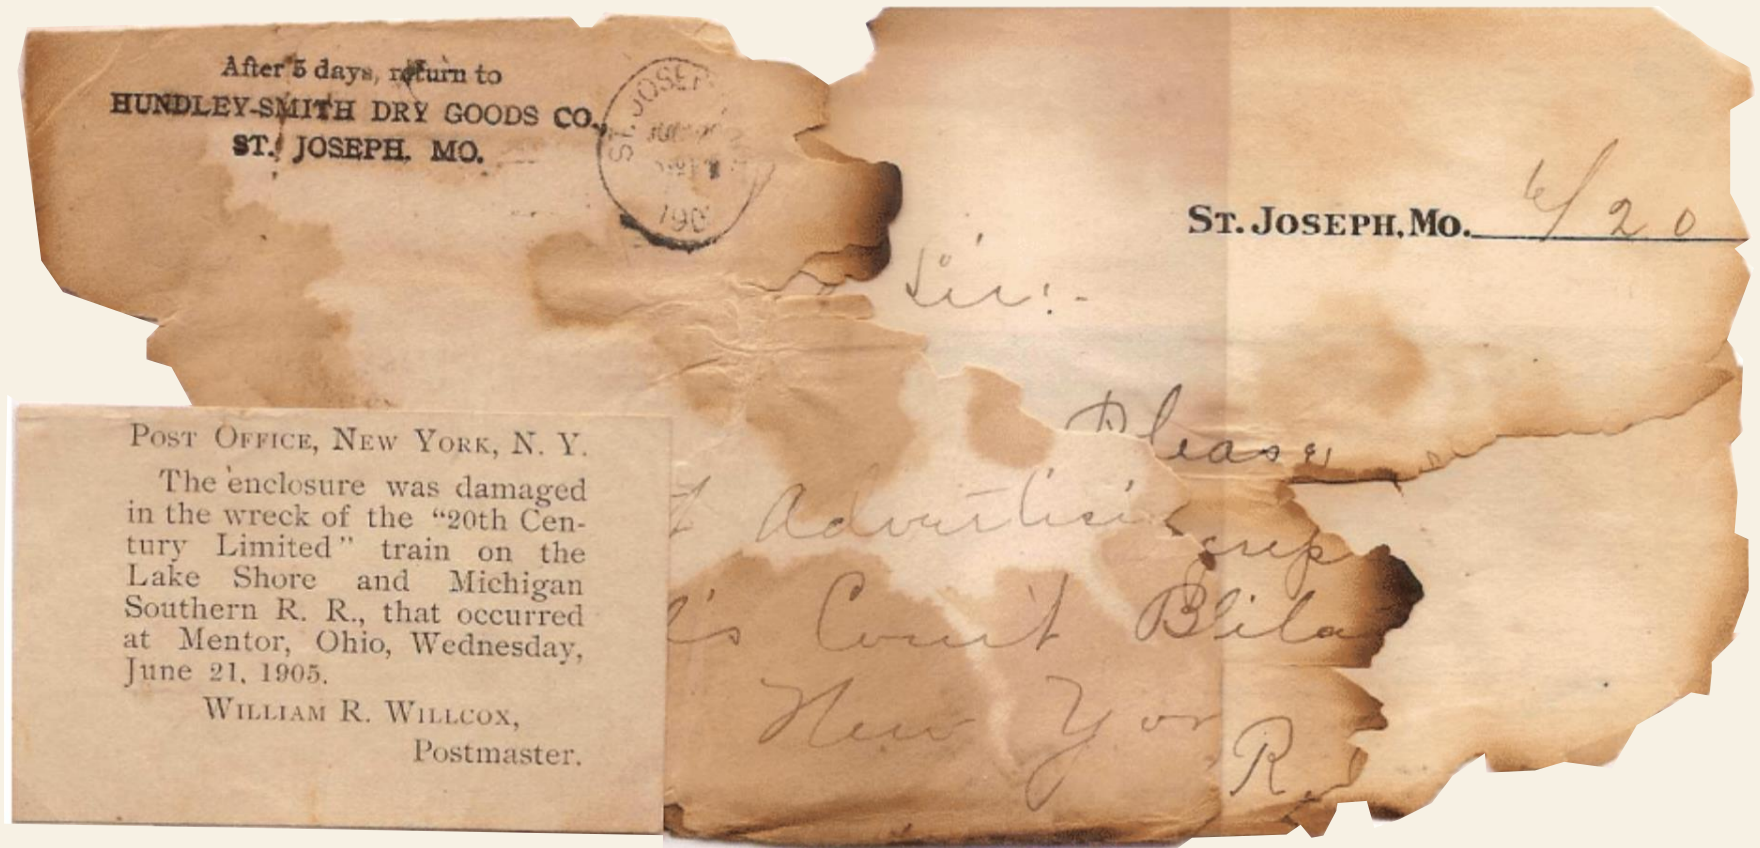 After 5 days, return to
HUNDLEY-SMITH DRY GOODS CO.,
ST. JOSEPH. MO.
ST. JOSEPH
190
ST. JOSEPH, MO. 6/20
Sir:-
Please
Advertisi
Court
New Yor
R.
POST OFFICE, NEW YORK, N. Y.
The enclosure was damaged
in the wreck of the "20th Cen-
tury Limited" train on the
Lake Shore and Michigan
Southern R. R., that occurred
at Mentor, Ohio, Wednesday,
June 21, 1905.
WILLIAM R. WILLCOX,
Postmaster.